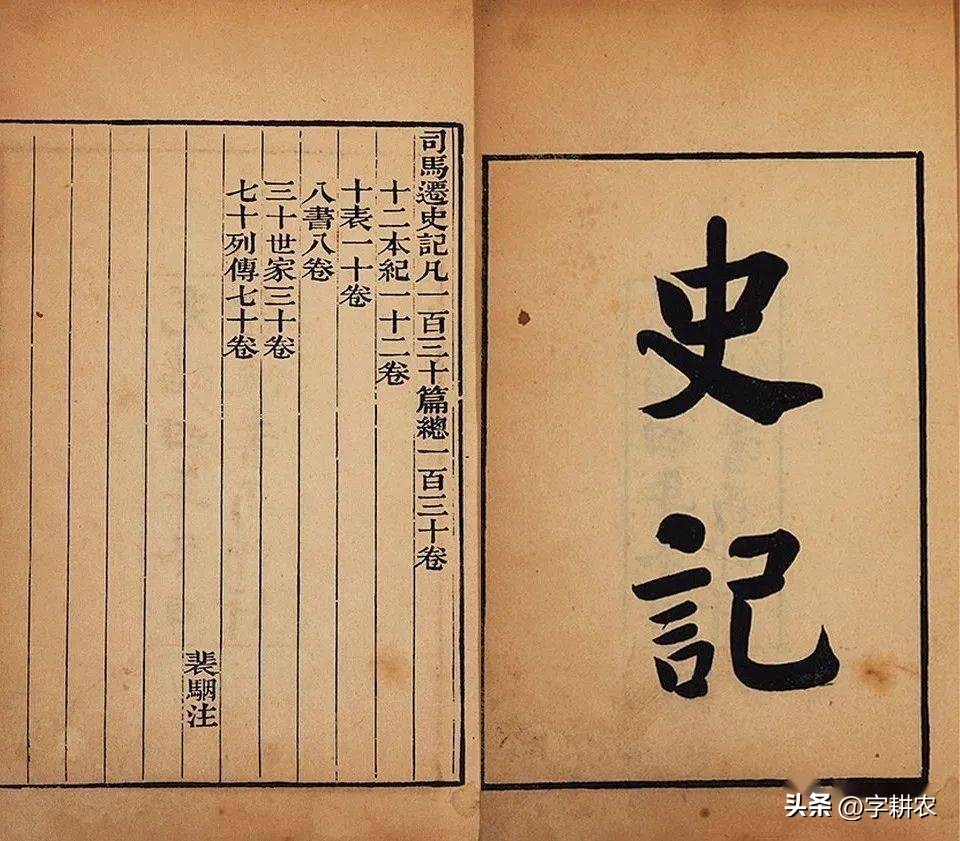 史記
司馬遷史記凡一百三十篇總一百三十卷
十二本紀一十二卷
十表一十卷
八書八卷
三十世家三十卷
七十列傳七十卷
裴駰注
头条 @字耕农